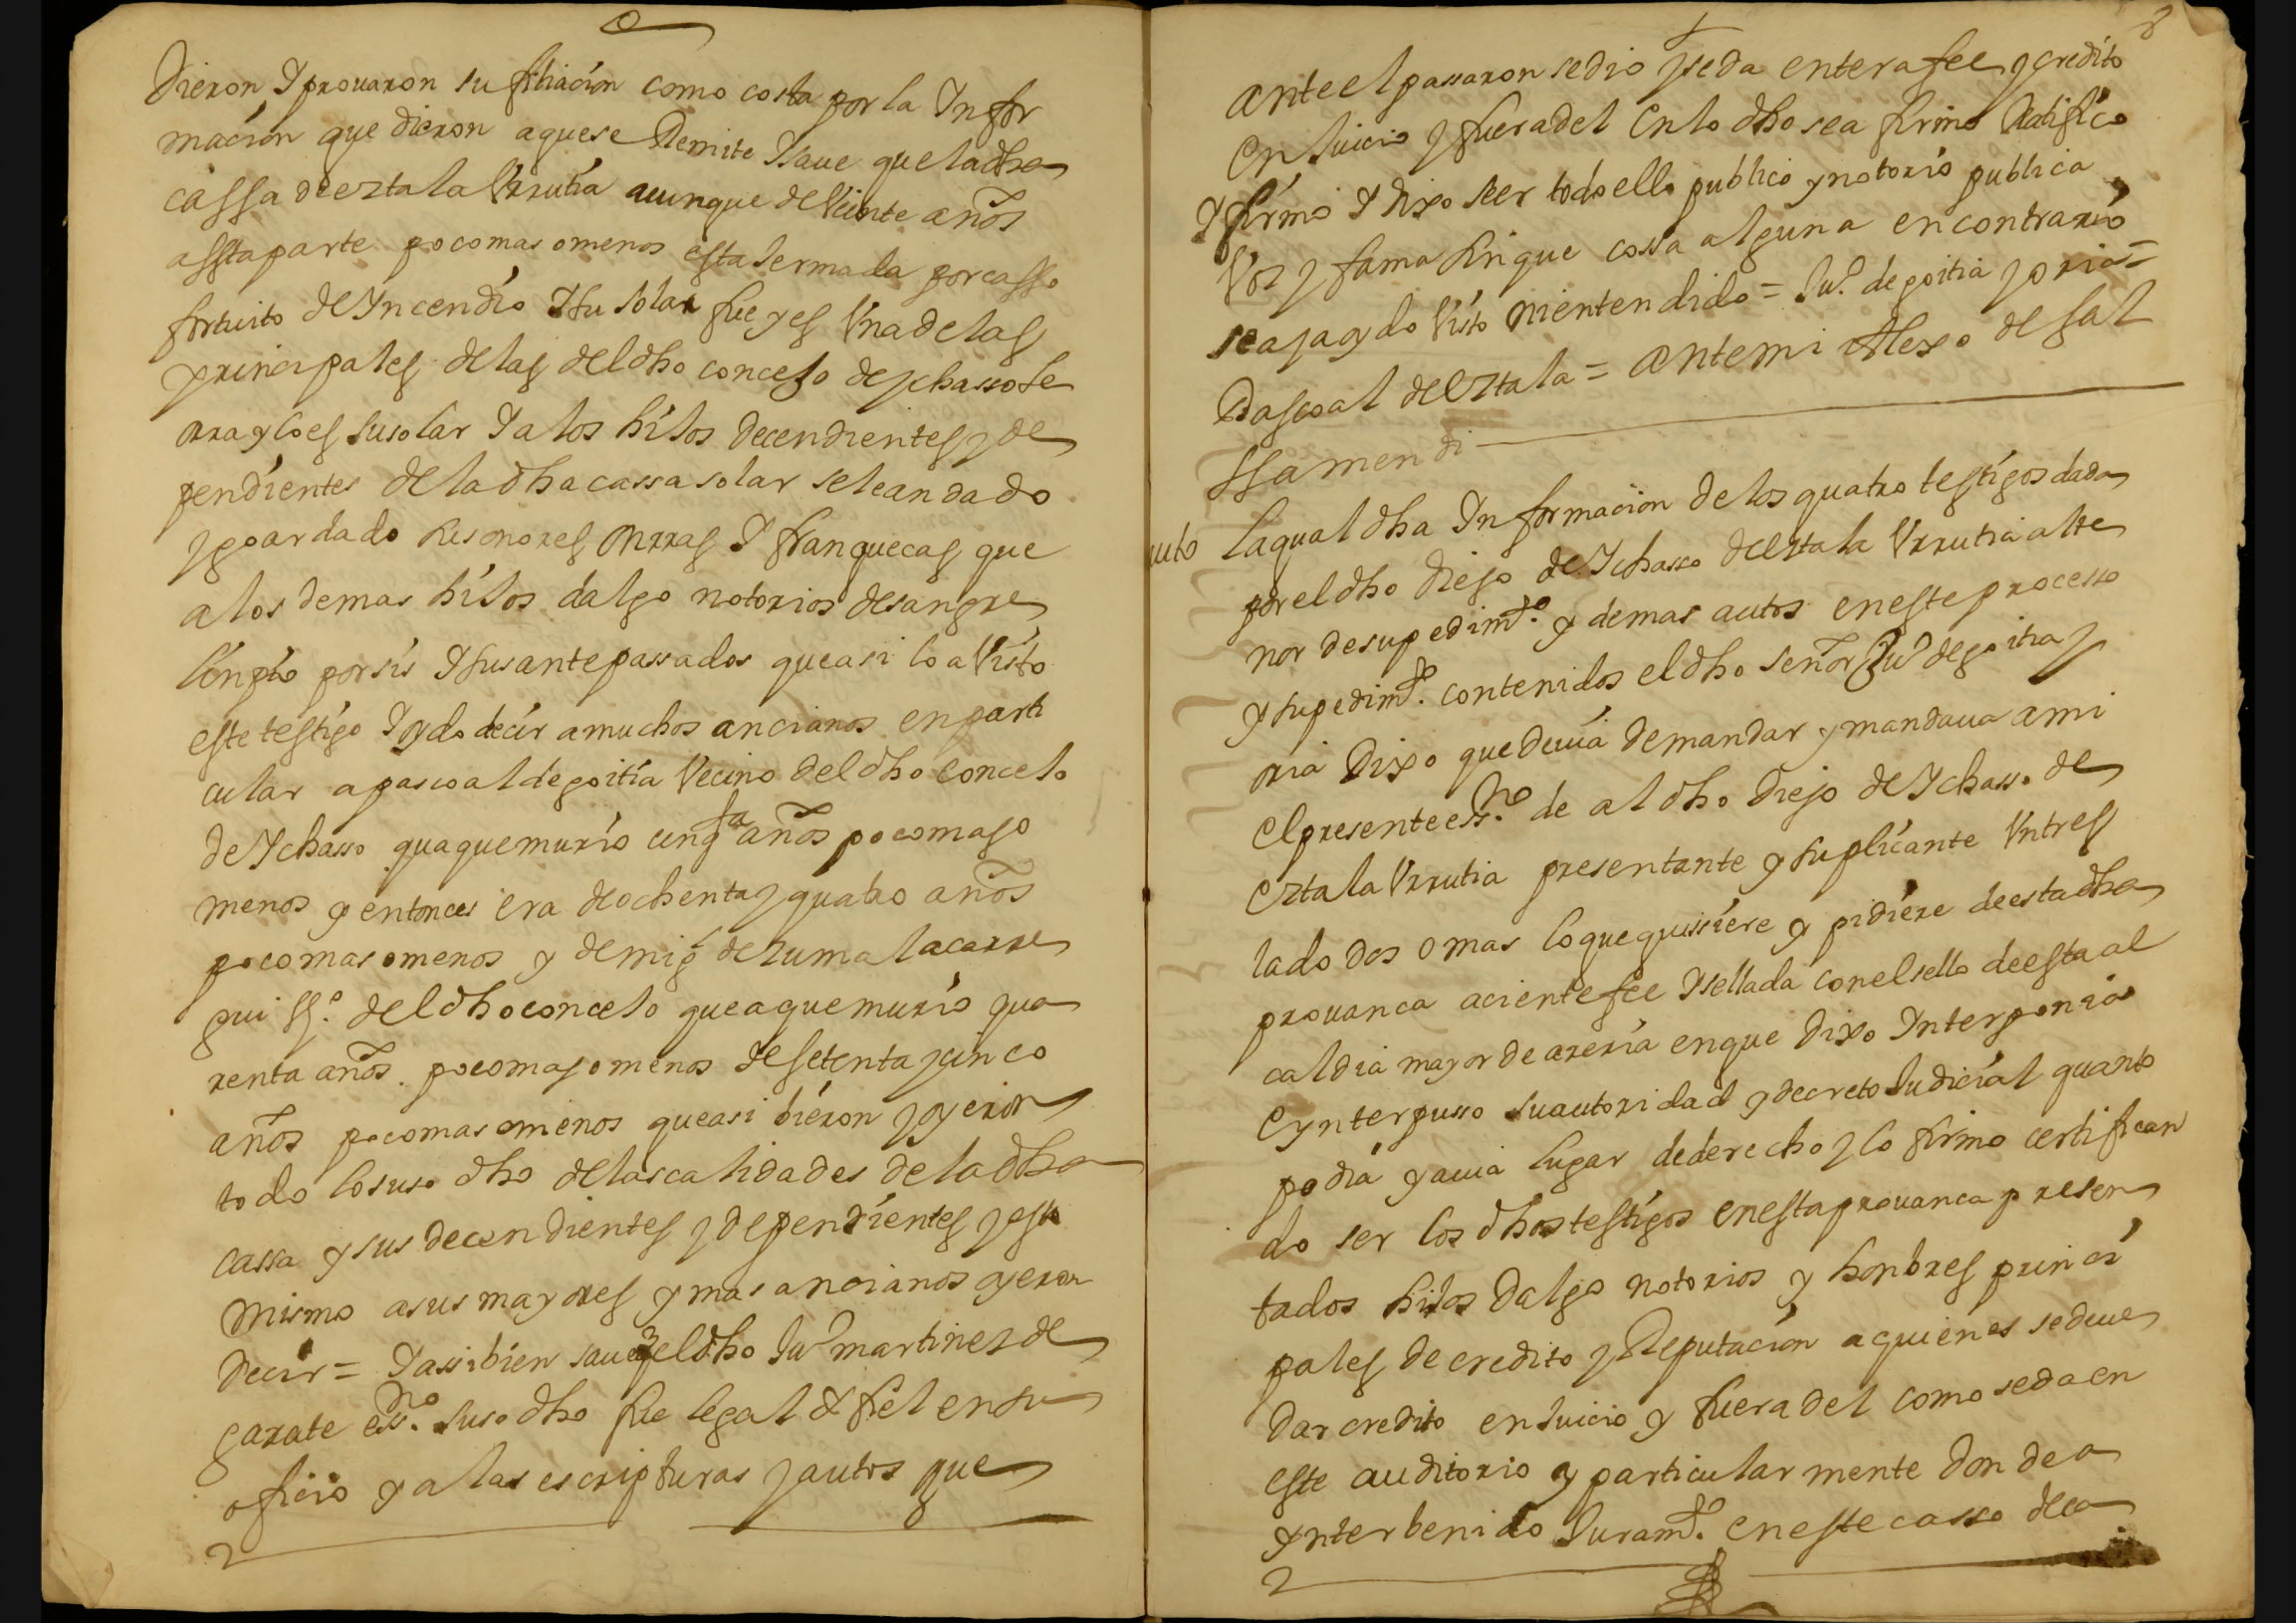 dieron y provaron su filiación como costa por la Infor
mación que dieron aquese Remite y save que la dha
cassa de eztala Urrutia aunque de veinte años
a esta parte poco mas o menos esta yermada por casso
fortuito de Yncendio y su solar fue y es Una de las
principales de las del dho concejo de ychasso te
rra y lo es su solar y a los hijos decendientes y de
pendientes de la dha cassa solar se le an dado
y goardado los onores onrras y franquecas que
a los demas hijos dalgo notorios de sangre
linpio por sis y sus antepassados que asi lo a Visto
este testigo y oydo decir a muchos ancianos en parti
cular a pascoal de goitia Vecino del dho concejo
de Ychasso qua que murio cinqta años poco mas o
menos y entonces era de ochenta y quatro años
poco mas o menos y de migl de zumalacarre
gui ssno del dho concejo que a que murio qua
renta años poco mas o menos de setenta y cinco
años poco mas o menos que asi bieron y oyeron
todo lo suso dho de las calidades de la dha
cassa y sus decendientes y dependientes y esto
mismo a sus mayores y mas ancianos oyeron
decir = y assi bien save q el dho Jun martines de
garate essno suso dho fue legal & fiel en su
oficio y a las escripturas y autos que
ante el passaron se dio y se da entera fee y credito
en Juicio y fuera del en lo dho se a firmo Ratifico
y firmo y dixo ser todo ello publico y notorio publica
Voz y fama sin que cossa alguna en contrario
se aya oydo Visto ni entendido = Jun. de goitia y oria =
Pascoal de Eztala = ante mi Alexo de sal
ssamendi
auto La qual dha Información de los quatro testigos dada
por el dho diego de Ychasso de eztala Urrutia al te
nor de su pedimto. y demas autos en este processo
y su pedimto. contenidos el dho señor Jun de goitia y
oria Dixo que devia de mandar y mandava a mi
el presente essno. de al dho Diego de Ychasso de
eztala Urrutia presentante y suplicante Un tres
lado dos o mas lo que quissiere y pidiere de esta dha
provanca aciente fee y sellada con el sello de esta al
caldia mayor de areria en que Dixo Interponia
e ynterpusso su autoridad y decreto Judicial quanto
podia y avia lugar de derecho y lo firmo certifican
do ser los dhos testigos en esta provanca presen
tados hijos dalgo notorios y honbres princi
pales de credito y Reputación a quienes se deve
Dar credito en Juicio y fuera del como se da en
este auditorio y particularmente donde a
ynterbenido Juramto. en este casso de ca